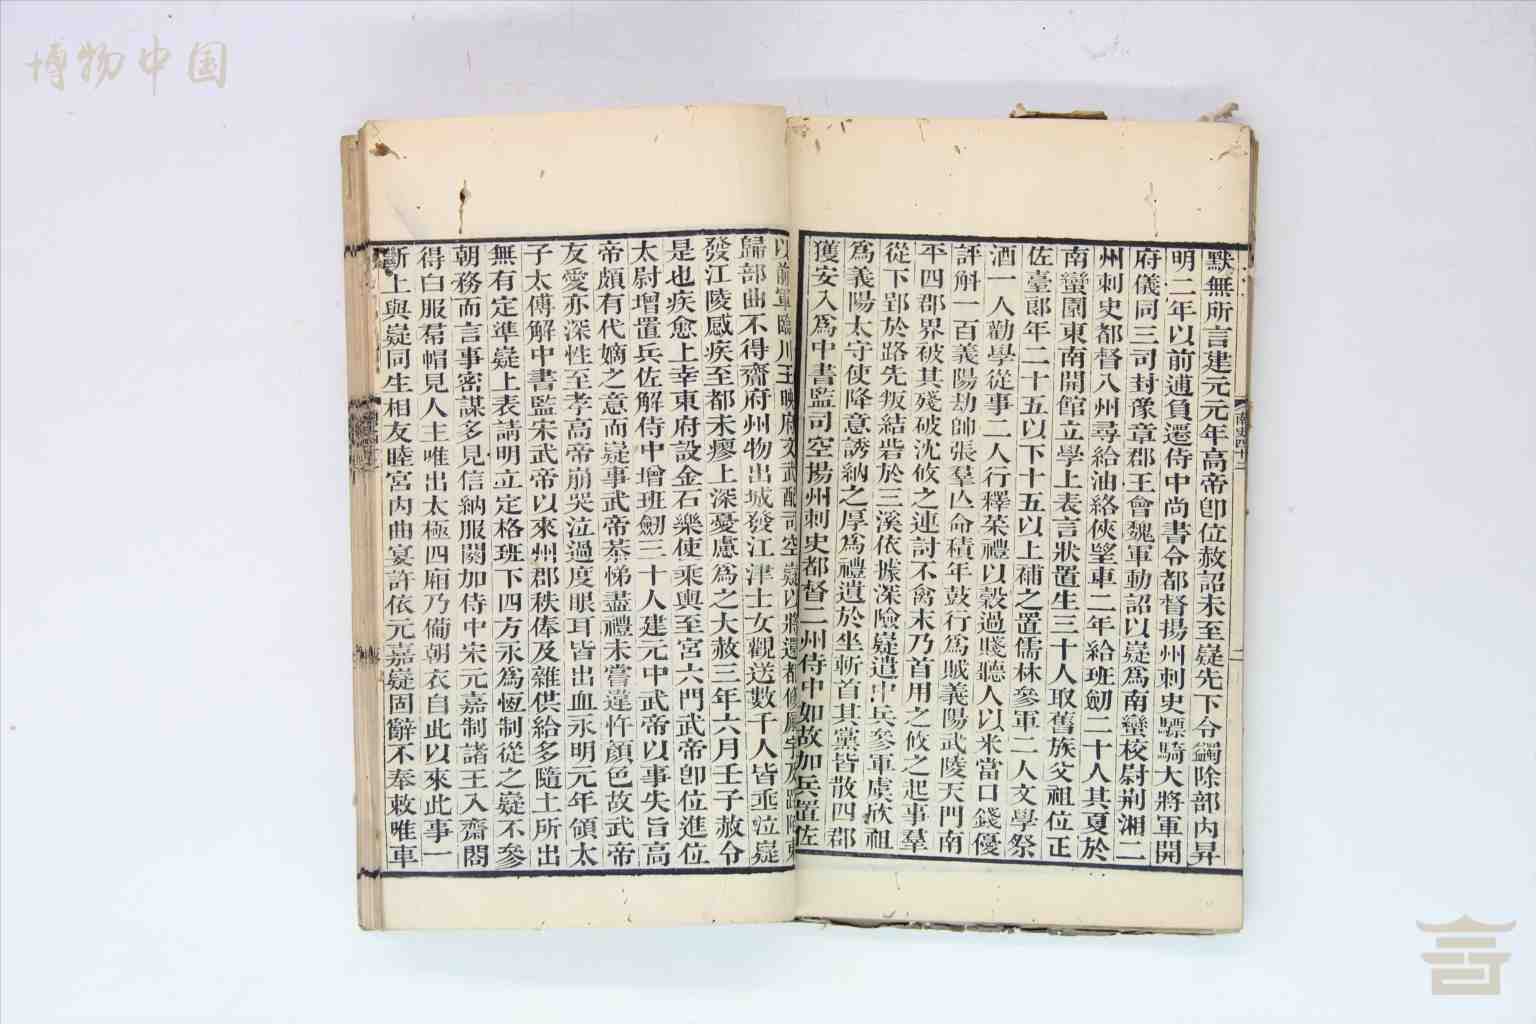 博物中国
默無所言建元元年高帝卽位赦詔未至嶷先下令蠲除部內昇
明二年以前逋負遷侍中尚書令都督揚州刺史驃騎大將軍開
府儀同三司封豫章郡王會魏軍動詔以嶷爲南蠻校尉荆湘二
州刺史都督八州尋給油絡俠望車二年給班劒二十人其夏於
南蠻園東南開館立學上表言狀置生三十人取舊族父祖位正
佐臺郞年二十五以下十五以上補之置儒林參軍一人文學祭
酒一人勸學從事二人行釋菜禮以穀過賤聽人以米當口錢優
評斛一百義陽劫帥張羣亾命積年鼓行爲賊義陽武陵天門南
平四郡界被其殘破沈攸之連討不禽末乃首用之攸之起事羣
從下郢於路先叛結砦於三溪依據深險嶷遣中兵參軍虞欣祖
爲義陽太守使降意誘納之厚爲禮遺於坐斬首其黨皆散四郡
獲安入爲中書監司空揚州刺史都督二州侍中如故加兵置佐
南史四十二
二
以前軍臨川王映府文武配司空嶷以將還都修廨宇及路陌東
歸部曲不得齎府州物出城發江津士女觀送數千人皆垂泣嶷
發江陵感疾至都未瘳上深憂慮爲之大赦三年六月壬子赦令
是也疾愈上幸東府設金石樂使乘輿至宮六門武帝卽位進位
太尉增置兵佐解侍中增班劒三十人建元中武帝以事失旨高
帝頗有代嫡之意而嶷事武帝恭悌盡禮未嘗違忤顏色故武帝
友愛亦深性至孝高帝崩哭泣過度眼耳皆出血永明元年領太
子太傅解中書監宋武帝以來州郡秩俸及雜供給多隨土所出
無有定準嶷上表請明立定格班下四方永爲恆制從之嶷不參
朝務而言事密謀多見信納服闋加侍中宋元嘉制諸王入齋閤
得白服帬帽見人主唯出太極四廂乃備朝衣自此以來此事一
斷上與嶷同生相友睦宮內曲宴許依元嘉嶷固辭不奉敕唯車